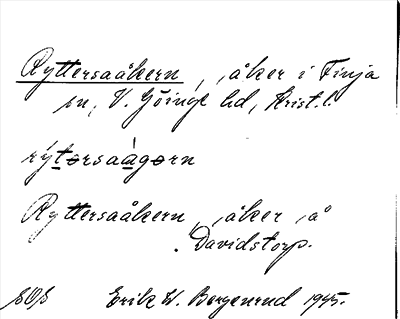 Ryttersaåkern, åker i Finja
sn, V. Göinge hd, Krist. l.
rýtersaàgern
Ryttersaåkern, åker å
Davidstorp.
SOS Erik W. Bergenrud 1945.